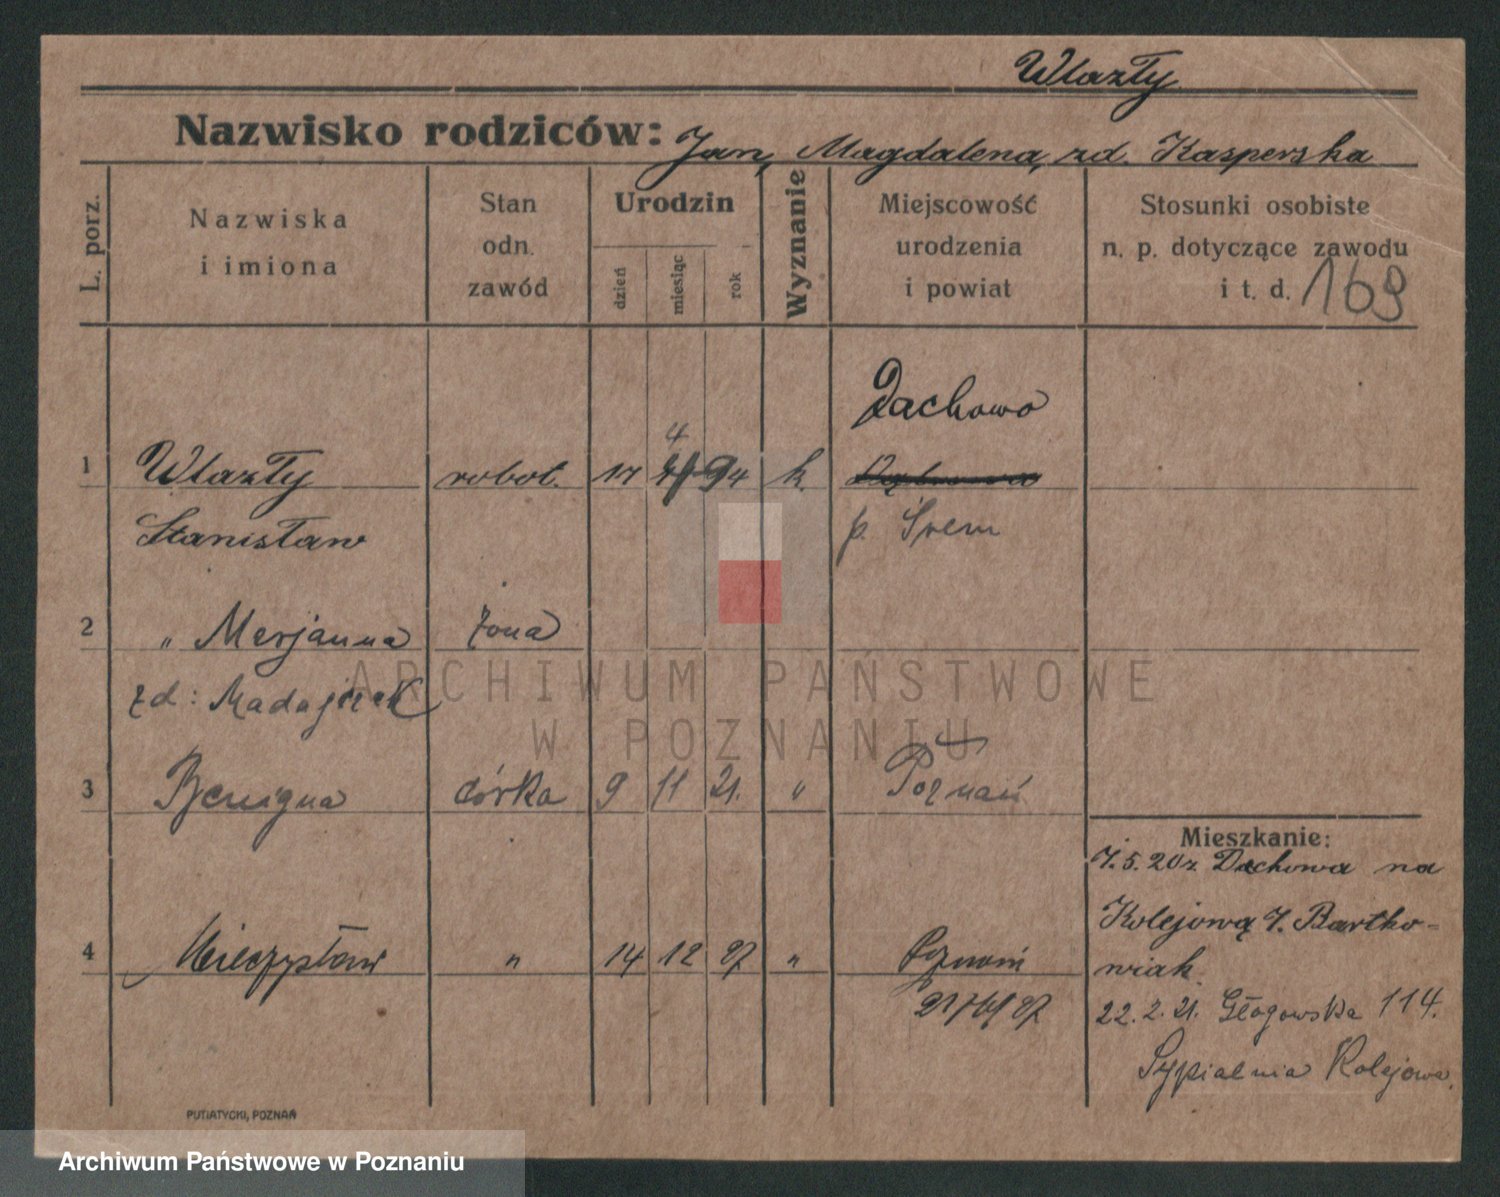 Wlazły
Nazwisko rodziców: Jan, Magdalena, zd. Kasperska
L. porz.
Nazwiska
i imiona
Stan
odn.
zawód
Urodzin
dzień
miesiąc
rok
Wyznanie
Miejscowość
urodzenia
i powiat
Stosunki osobiste
n. p. dotyczące zawodu
i t. d. 169
Dachowo
4
1 Wlazły robot. 17 94 k.
Stanisław p. Śrem
2 " Marjanna żona
zd:
3 Benigna córka 9 11 21. " Poznań
4 Mieczysław " 14 12 27 " Poznań
Mieszkanie:
7.5.20 z Dachowa na
Kolejową 7. Bartko-
wiak.
22.2.21. Głogowska 114.
Sypialnia Kolejowa.
PUTIATYCKI, POZNAŃ
ARCHIWUM PAŃSTWOWE
W POZNANIU
Archiwum Państwowe w Poznaniu